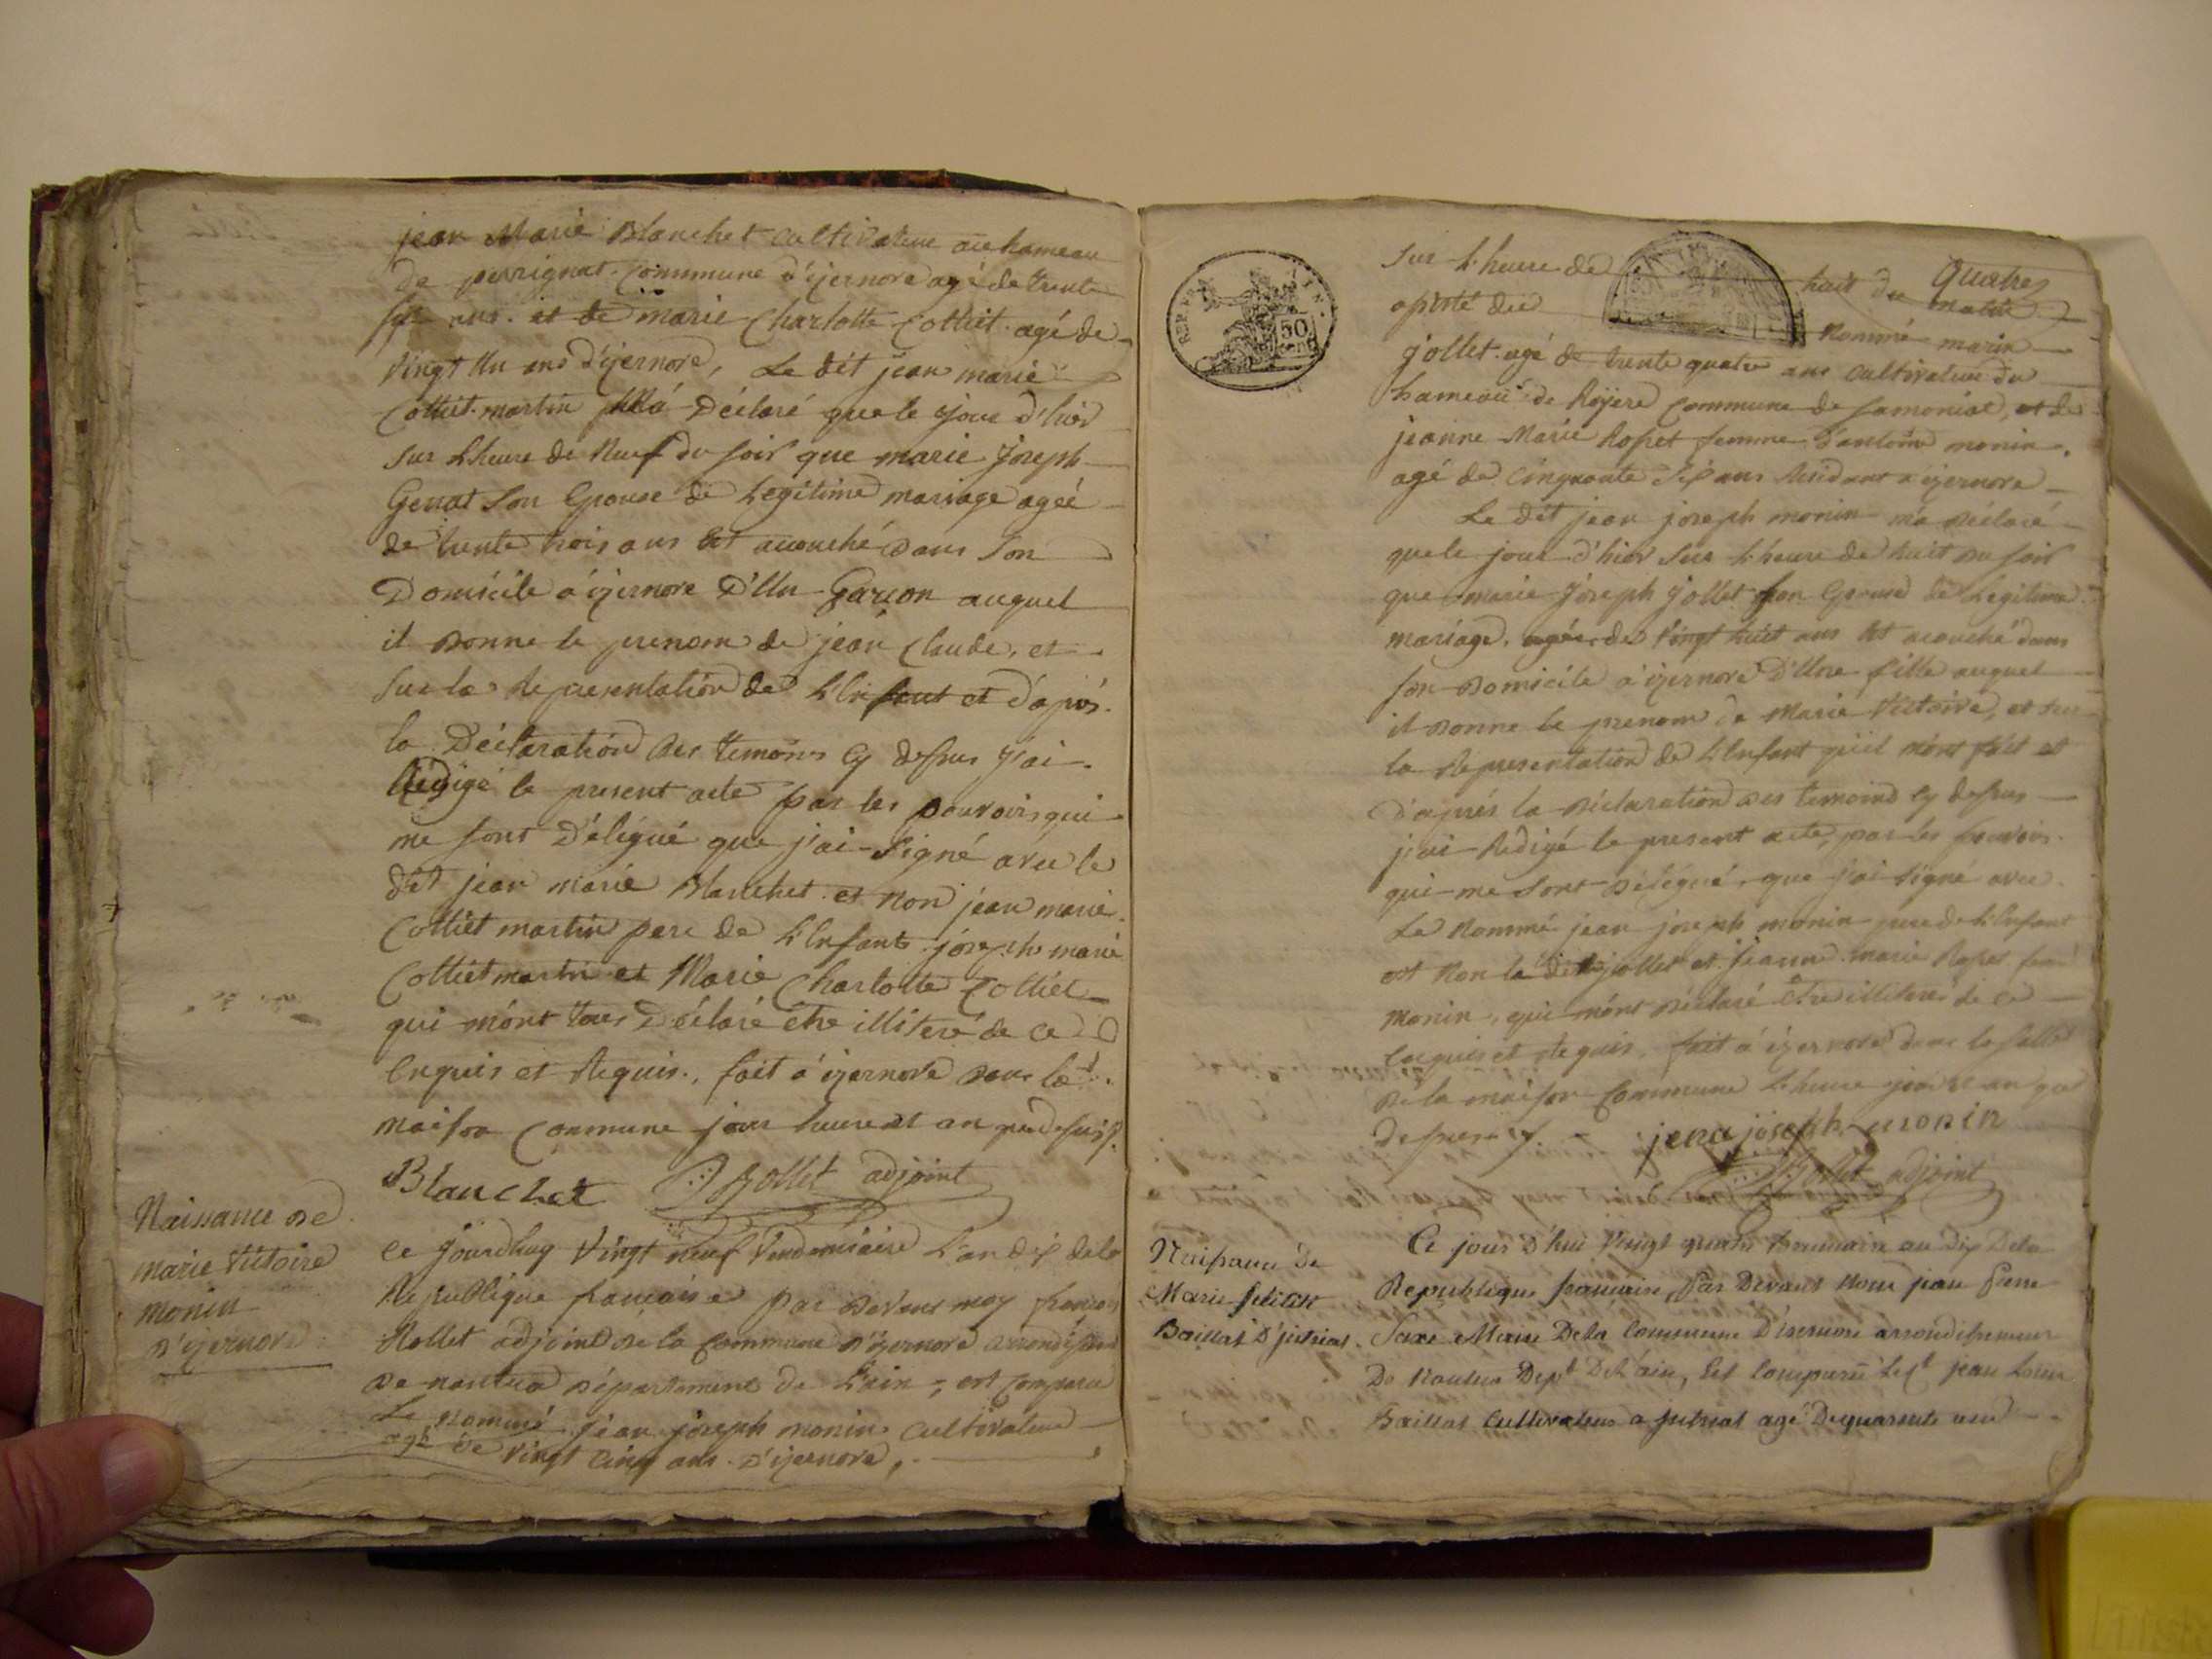 jean Marie Blanchet cultivateur au hameau
de perrignat commune d'izernore agé de trente
sept ans. et de marie Charlotte Cottiet agé de
Vingt Un ans d'izernore, Le dit jean marie
Cottiet martin Déclaré que le jour d'hier
sur l'heure de Neuf du soir que marie Joseph
Genat son Epouse de Legitime mariage ageé
de trente trois ans Est accouché dans son
Domicile a izernore D'Un Garcon auquel
il Donne le prenom de jean Claude, et
sur la Representation de L'Enfant et d'après
la Déclaration des temoins cy dessus j'ai
Redigé le present acte par les pouvoirs qui
me sont Délégué que j'ai Signé avec le
dit jean marie Blanchet et Non jean marie
Cottiet martin pere de L'Enfant joseph marie
Cottiet martin et Marie Charlotte Cottiet
qui m'ont tous Déclaré être illiteré de ce
Enquis et Requis, fait á izernore dans la
maison Commune jour heure et an que dessus
Blanchet Rollet adjoint
Naissance de
marie Victoire
monin
d'izernore
Ce jourdhuy Vingt neuf Vendemiaire L'an dix de la
Republique francaise par devant moy francois
Rollet adjoint de la commune d'izernore arrondissement
de nantua département de L'ain, est comparu
Le nommé jean joseph monin cultivateur
agé de vingt cinq ans d'izernore,
Quatre
REP. FRA.
50
sur L'heure de huit du matin
apisté du Nommé marin
jollet agé de trente quatre ans cultivateur du
hameau de Röyere commune de samoniat, et de
jeanne Marie Rosset femme d'antoine monin
agé de Cinquante Sept ans Residant a izernore
Le dit jean joseph monin m'a déclaré
que le jour d'hier sur L'heure de huit du soir
que marie Joseph jollet son Epouse de Legitime
mariage, agée de Vingt huit ans Est acouché dans
son domicile a izernore D'Une fille auquel
il donne le prenom de Marie Victoire, et sur
la Representation de L'Enfant qu'il m'ont fait et
d'après la déclaration des temoins cy dessus
j'ai Redigé le present acte, par les pouvoirs
qui me sont délégué, que j'ai signé avec
Le Nommé jean joseph monin pere de L'Enfant
et Non le dit jollet et jeanne marie Rosset fem
monin, qui m'ont déclaré être illiteré de ce
Enquis et Requis, fait a izernore dans la salle
de la maison Commune L'heure jour et an que
dessus
jean joseph monin
Rollet adjoint
Naissance de
Marie felicité
Baillat D'jutriat
Ce jour d'hui Vingt quatre brumaire an Dix Dela
Republique francaise, Par Devant Nous jean Pierre
Saxe Maire Dela Commune D'isernore arrondissement
De Nantua Dept De L'ain, Est Comparu le Ct jean Louis
Baillat Cultivateur a jutriat agé De quarante un